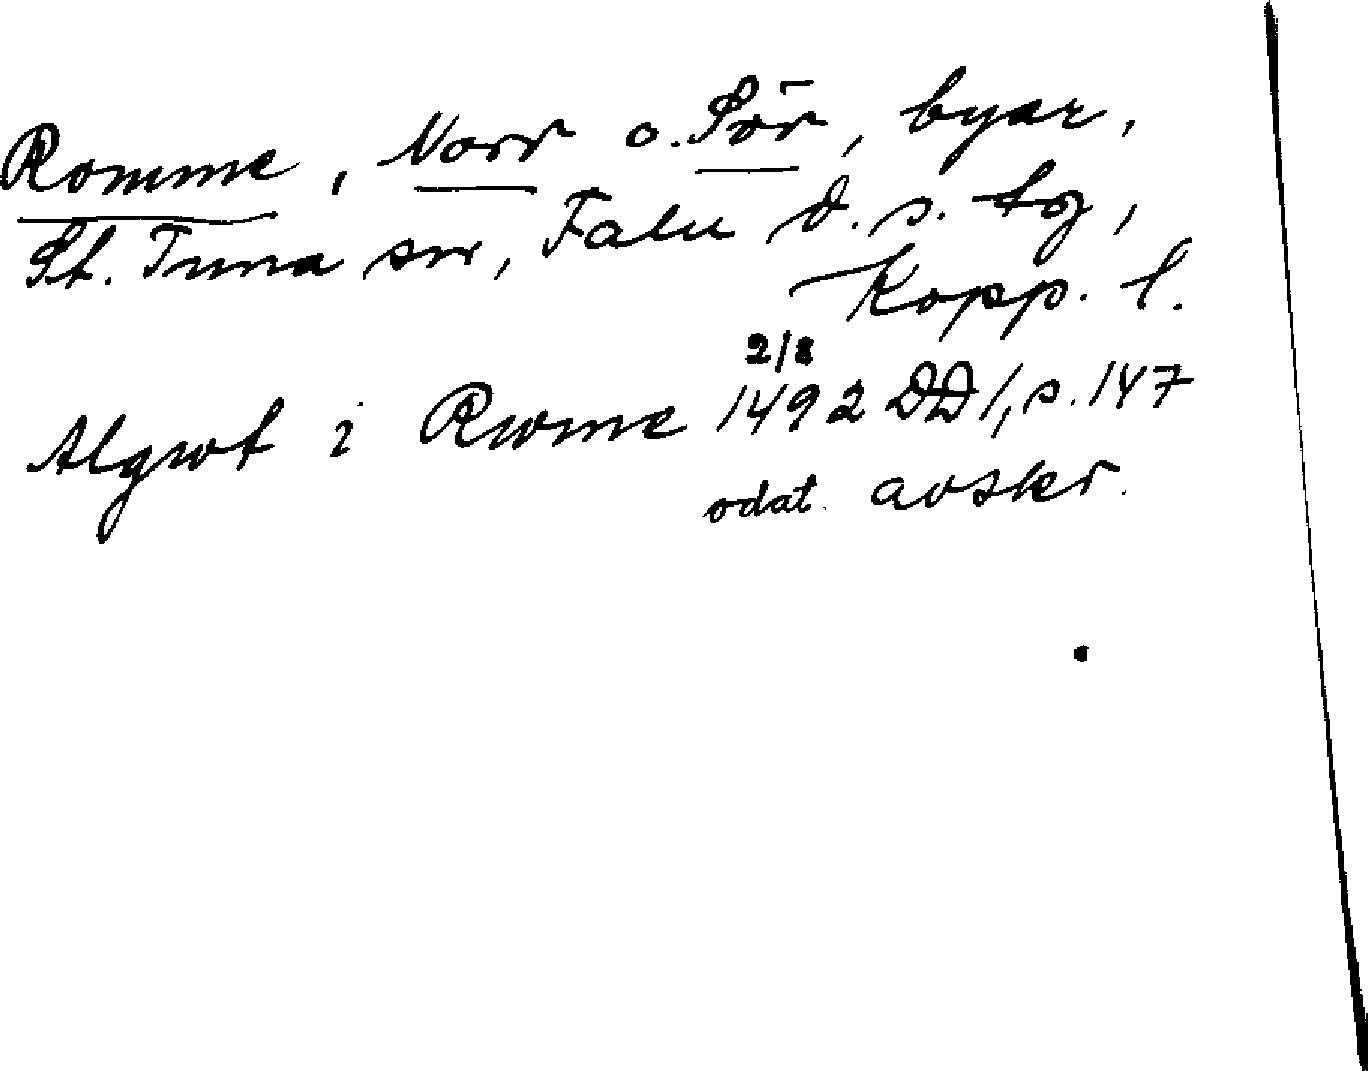 Romme, Norr o. Sör, byar,
St. Tuna sn, Falu d. s. tg,
Kopp. l.
2/8
Algwt i Rwme 1492 DD 1, s. 147
odat. avskr.